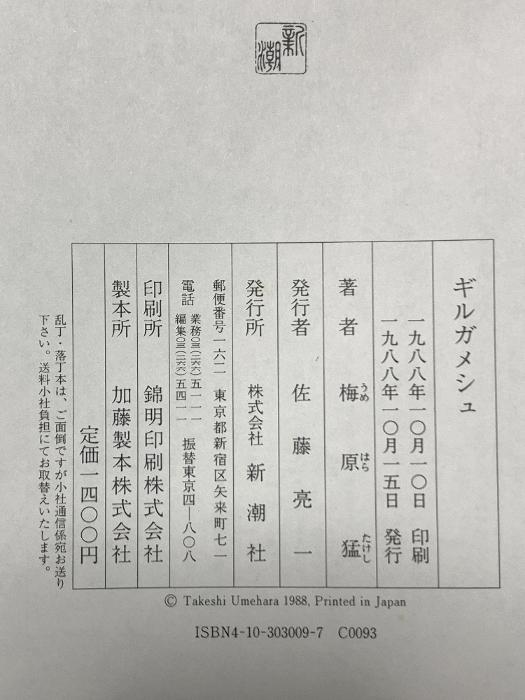 新潮
ギルガメシュ
一九八八年一〇月一〇日 印刷
一九八八年一〇月一五日 発行
著者 梅原猛
うめ はら たけし
発行者 佐藤亮一
発行所 株式会社新潮社
郵便番号一六二 東京都新宿区矢来町七一
電話 業務〇三(二六六)五一一一
編集〇三(二六六)五四一一
振替東京四—八〇八
印刷所 錦明印刷株式会社
製本所 加藤製本株式会社
定価一四〇〇円
乱丁・落丁本は、ご面倒ですが小社通信係宛お送り
下さい。送料小社負担にてお取替えいたします。
© Takeshi Umehara 1988, Printed in Japan
ISBN4-10-303009-7 C0093